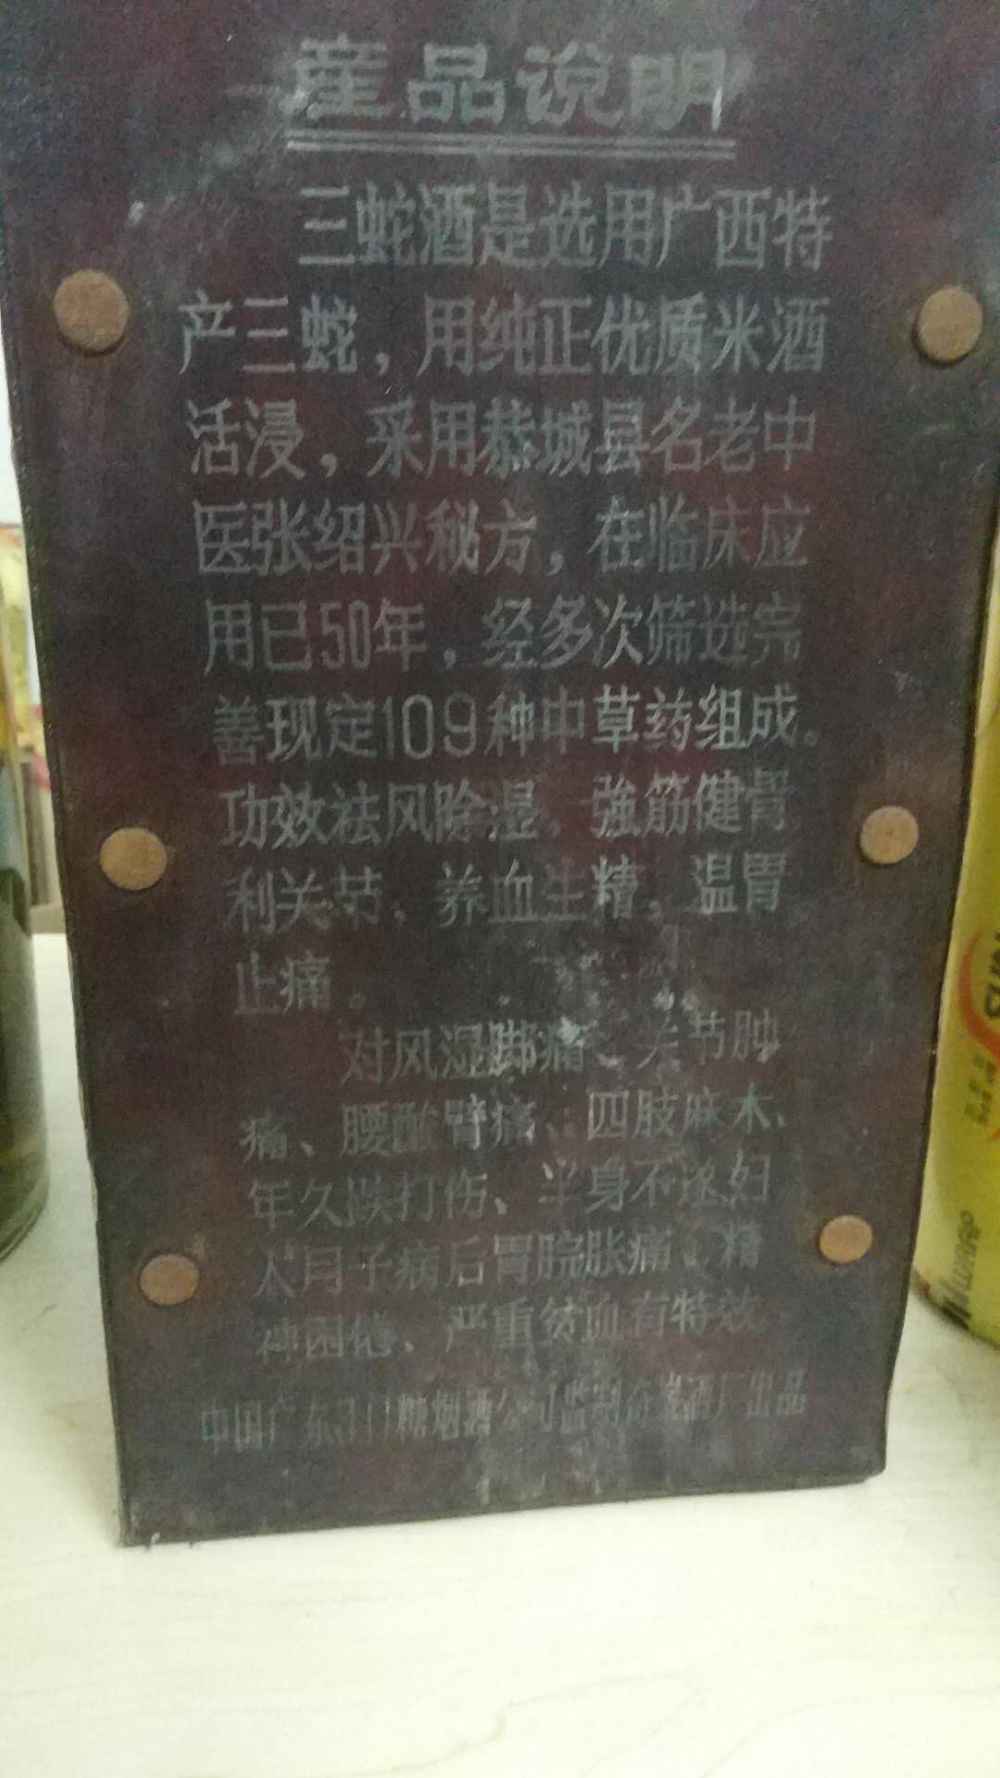 産品说明
三蛇酒是选用广西特
产三蛇，用纯正优质米酒
活浸，采用恭城县名老中
医张绍兴秘方，在临床应
用已50年，经多次筛选完
善现定109种中草药组成。
功效祛风除湿、強筋健骨
利关节、养血生精，温胃
止痛。
对风湿脚痛、关节肿
痛、腰酸臂痛、四肢麻木、
年久跌打伤、半身不遂妇
人月子病后胃脘胀痛、精
神困倦、严重贫血有特效
中国广东江门糖烟酒公司监制 酒厂出品